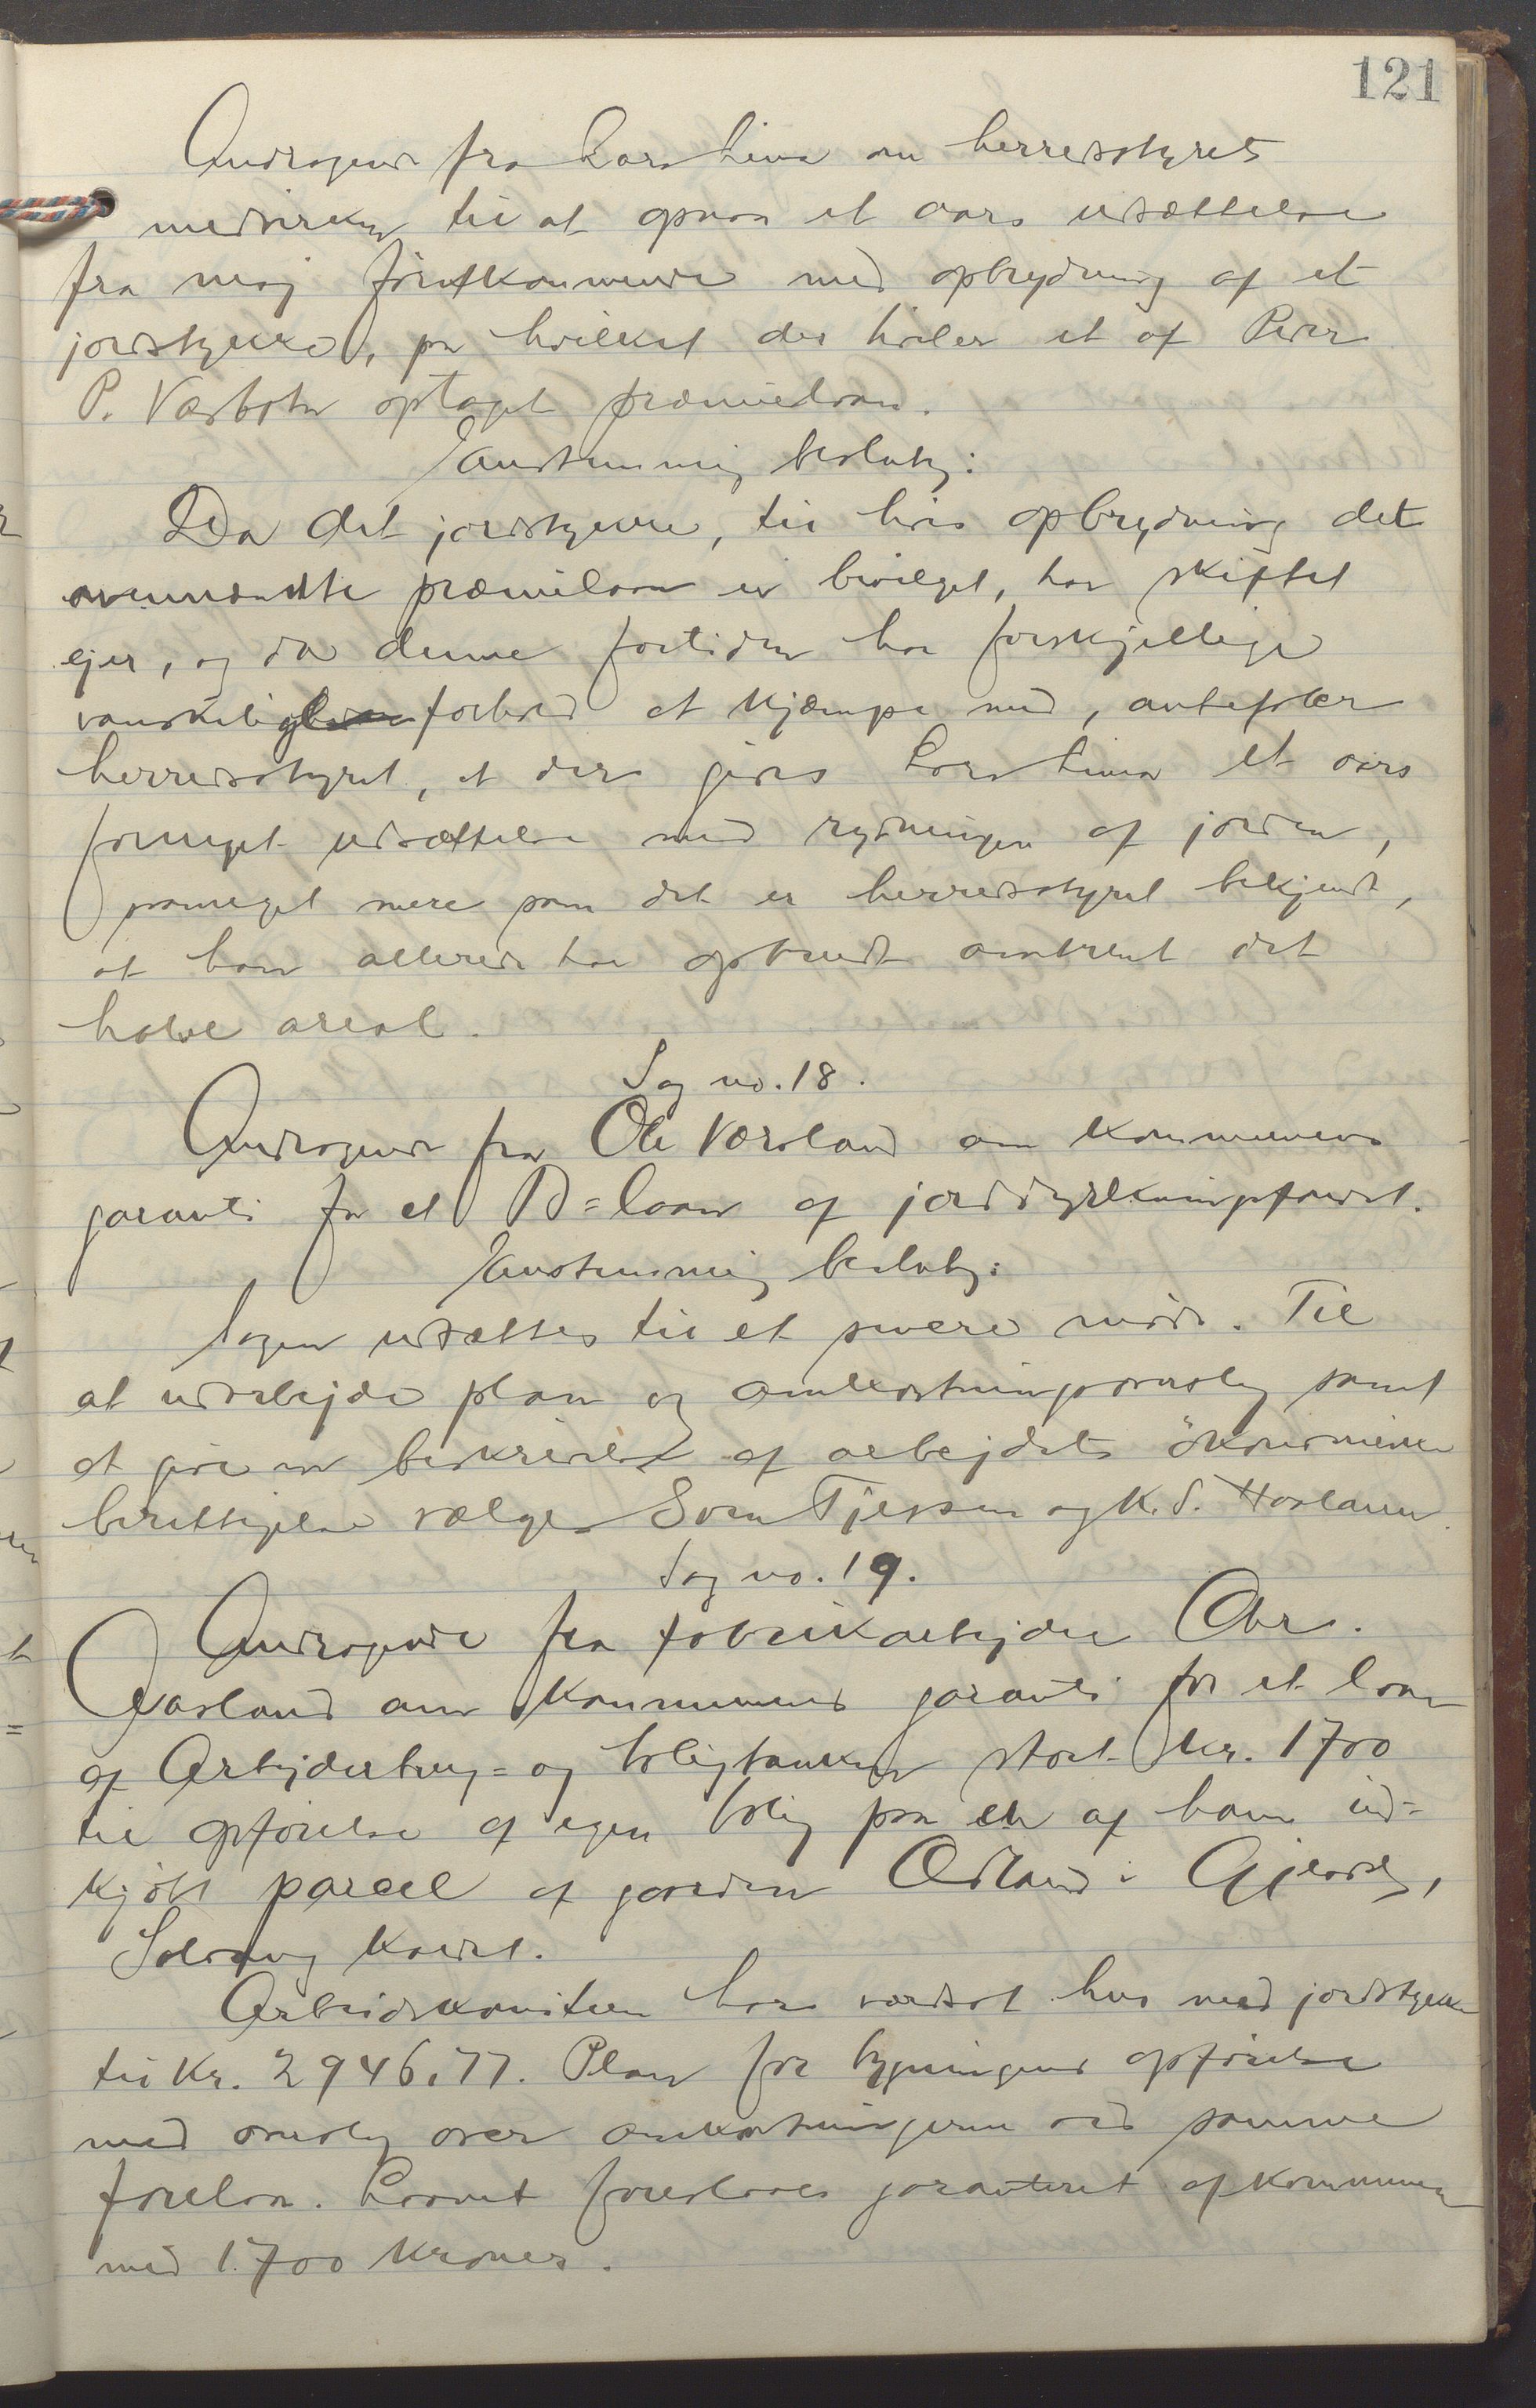 121
Andragende fra Lars Lima om herredsstyrets
medvirken til at opnaa et aars udsættelse
fra maj førstkommende med opbrydning af et
jordstykke, paa hvilket der hviler et af Peder
P. Værbotn optaget præmielaan.
Enstemmig beslutn:
Da det jordstykke, til hvis opbrydning det
ovennævnte præmielaan er bevilget, har skiftet
ejer, og da denne fortiden har forskjellige
vanskelige forhold at kjæmpe med, anbefaler
herredsstyret, at der gives Lars Lima et aars
forneget udsættelse med rydningen af jorden,
saameget mere som det er herredsstyret bekjendt,
at han allerede har opbrudt omtrent det
halve areal.
Sag no. 18.
Andragende fra Ole Værsland om kommunens
garanti for et D=laan af jorddyrkningsfondet.
Enstemmig beslutn:
Sagen udsættes til et senere møde. Til
at udarbejde plan og omkostningsoverslag samt
at give en beskrivelse af arbejdets økonomiske
berettigelse vælges Sven Tjessem og K. S. Haaland.
Sag no. 19.
Andragende fra fabrikarbejder Chr.
Aasland om kommunens garanti for et laan
af Arbejderbrug= og boligbanken stort kr. 1700
til opførelse af egen bolig paa en af ham ind=
kjøbt parcel af gaarden Ødland i Gjesdal,
Solvang kaldt.
Arbeidskomiteen har værdsat hus med jordstykke
til Kr. 2946,77. Plan for bygningens opførelse
med overslag over omkostningerne ved samme
forelaa. Laanet foreslaaes garanteret af kommunen
med 1700 kroner.